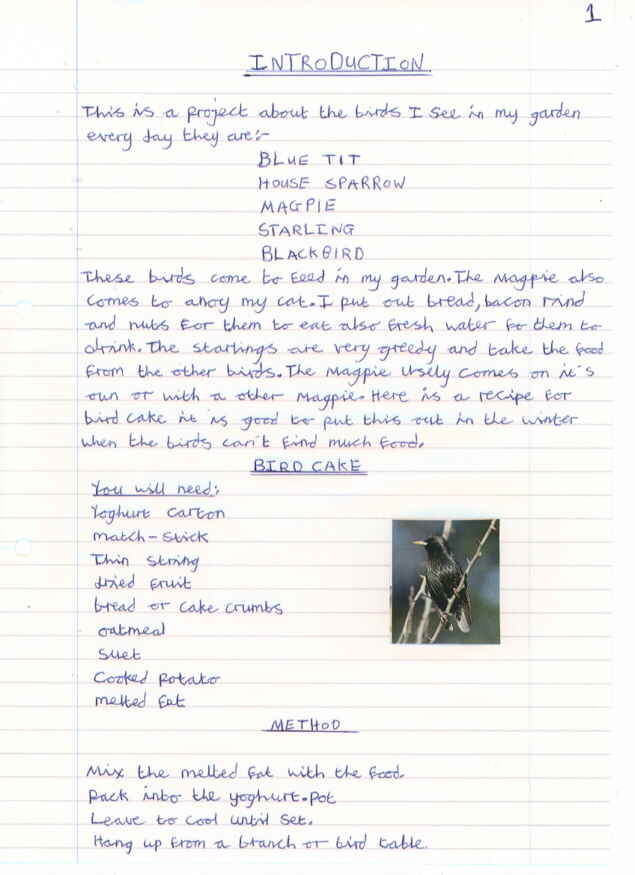 1
INTRODUCTION
This is a project about the birds I see in my garden
every day they are:-
BLUE TIT
HOUSE SPARROW
MAGPIE
STARLING
BLACKBIRD
These birds come to feed in my garden. The Magpie also
comes to anoy my cat. I put out bread, bacon rind
and nuts for them to eat also fresh water fo them to
drink. The starlings are very greedy and take the food
from the other birds. The Magpie usely comes on it's
own or with a other Magpie. Here is a recipe for
bird cake it is good to put this out in the winter
when the birds can't find much food.
BIRD CAKE
You will need:
Yoghurt carton
match-stick
Thin string
dried fruit
bread or cake crumbs
oatmeal
suet
Cooked Potato
melted fat
METHOD
Mix the melted fat with the food.
Pack into the yoghurt-pot
Leave to cool until set.
Hang up from a branch or bird table.